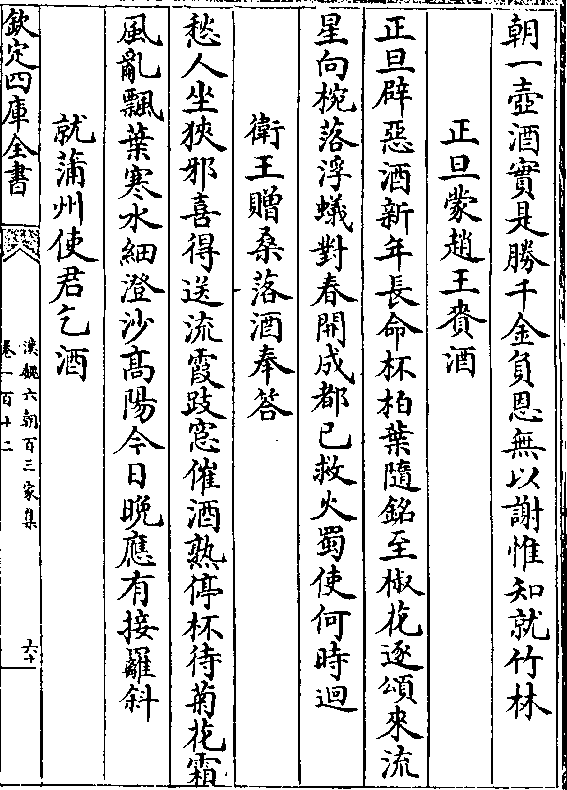 朝一壺酒實是勝千金負恩無以謝惟知就竹林
正旦蒙趙王賚酒
正旦辟惡酒新年長命杯柏葉隨銘至椒花逐頌來流
星向椀落浮蟻對春開成都已救火蜀使何時迴
衛王贈桑落酒奉答
愁人坐狹邪喜得送流霞跂窻催酒熟停杯待菊花霜
風亂飄葉寒水細澄沙髙陽今日晩應有接䍦斜
就蒲州使君乞酒
欽定四庫全書
漢魏六朝百三家集
卷一百十二
六十